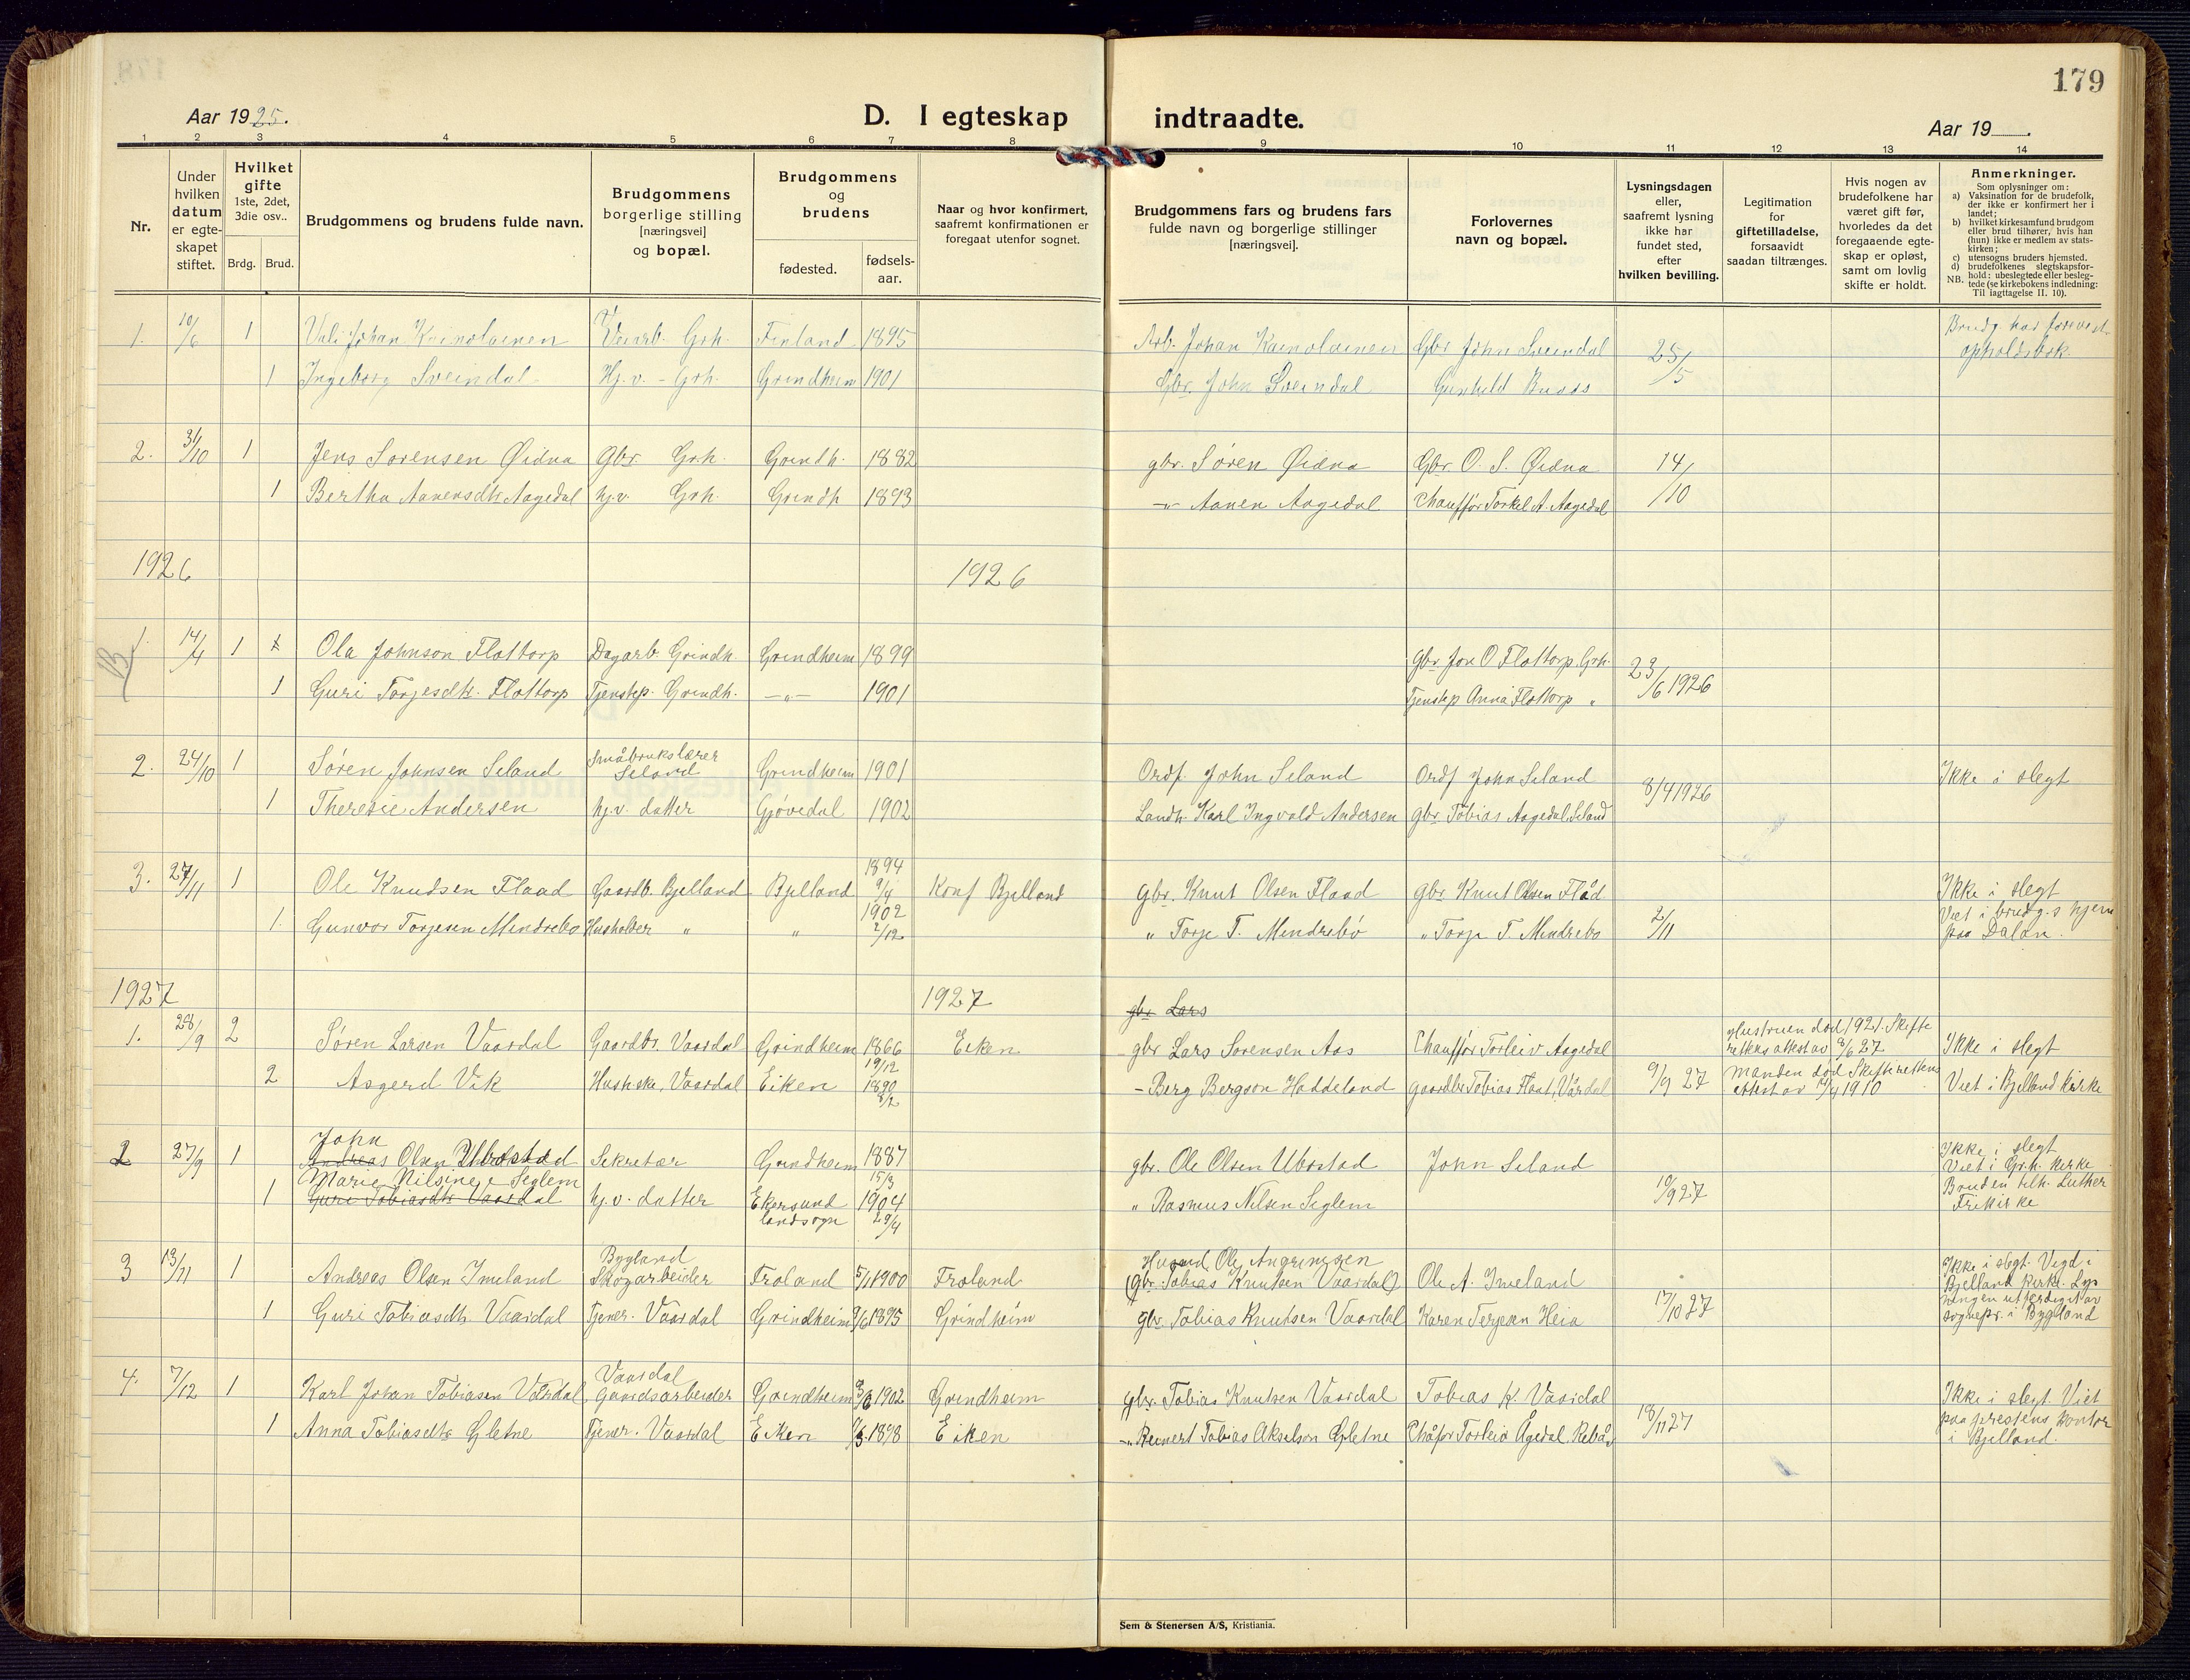 179
Aar 1925.
D. I egteskap indtraadte.
Aar 19
1 2 3 4 5 6 7 8 9 10 11 12 13 14
Nr.
Under hvilken datum er egte-skapet stiftet.
Hvilket gifte 1ste, 2det, 3die osv..
Brdg. Brud.
Brudgommens og brudens fulde navn.
Brudgommens borgerlige stilling [næringsvei] og bopæl.
Brudgommens og brudens
fødested.
fødsels-aar.
Naar og hvor konfirmert, saafremt konfirmationen er foregaat utenfor sognet.
Brudgommens fars og brudens fars fulde navn og borgerlige stillinger [næringsvei].
Forlovernes navn og bopæl.
Lysningsdagen eller, saafremt lysning ikke har fundet sted, efter hvilken bevilling.
Legitimation for giftetilladelse, forsaavidt saadan tiltrænges.
Hvis nogen av brudefolkene har været gift før, hvorledes da det foregaaende egte-skap er opløst, samt om lovlig skifte er holdt.
Anmerkninger.
Som oplysninger om:
a) Vaksination for de brudefolk, der ikke er konfirmert her i landet;
b) hvilket kirkesamfund brudgom eller brud tilhører, hvis han (hun) ikke er medlem av stats-kirken;
c) utensogns bruders hjemsted.
d) brudefolkenes slegtskapsfor-hold: ubeslegtede eller besleg-tede (se kirkebokens indledning:
NB. Til iagttagelse II. 10).
1. 10/6 1 Johan Finland 1895 Arb. Johan Gbr John Sveindal 25/5 Brudg. har forevist
opholdsbok
1 Ingeborg Sveindal Hj.v. - Grh. Grindheim 1901 Gbr. John Sveindal Gunhild
2. 31/10 1 Jens Sørensen Øidna Gbr. Grh. Grindh. 1882 gbr. Søren Øidna Gbr. O. S. Øidna 14/10
1 Bertha Aanensdtr Aagedal hj.v. Grh. Grindh 1893 -"- Aanen Aagedal Chauffør Torkel A. Aagedal
1926 1926
1. 14/4 1 Ola Johnson Flottorp Dagarb. Grindh. Grindheim 1899 Gbr. Jon O Flottorp Grh. 23/6 1926
1 Guri Torjesdtr. Flottorp Tjenstep. Grindh. -"- 1901 Tjenstep Anna Flottorp "
2. 24/10 1 Søren Johnsen Seland Småbrukslærer Seland Grindheim 1901 Ordf. John Seland Ordf John Seland 8/4 1926 Ikke i slegt
1 Theresie Andersen hj.v. datter Gjøvedal 1902 Landh. Karl Ingvald Andersen gbr Tobias Aagedal Seland
3. 27/11 1 Ole Knudsen Flaad Gaardb. Bjelland Bjelland 1894 9/4 Konf Bjelland gbr. Knut Olsen Flaad gbr. Knut Olsen Flåd 2/11 Ikke i slegt
1. Gunvor Torjesen Mindrebø Husholder " " 1902 2/12 " Torje T. Mindrebø " Torje T. Mindrebø Viet i brudg.s hjem
paa Dalan.
1927 1927 gbr Lars
1. 28/9 2 Søren Larsen Vaardal Gaardbr. Vaardal Grindheim 1866 19/12 Eiken gbr Lars Sørensen Aas Chauffør Torleiv Aagedal Hustruen død 1921. Skifte
rettens attest av 8/6 27 Ikke i slegt
2 Asgerd Vik Hushske, Vaardal Eiken 1890 8/2 - Berg Bergson Haddeland gaardbr Tobias Vårdal 9/9 27 Manden død Skifterettens
attest av 14/4 1910 Viet i Bjelland Kirke
2 27/9 1 John Andreas Olsen Ubostad Sekretær Grindheim 1887 15/3 gbr. Ole Olsen Ubostad John Seland 10/9 27 Ikke i slegt
Viet i Grh. kirke
Marie Nilsine Seglem
1 Guri Tobiasdtr Vaardal hj.v. datter Ekersund landsogn 1904 29/4 " Rasmus Nilsen Seglem Bruden tilh. Luther
Frikirke
3 13/11 1 Andreas Olsen Imeland Bygland Skogarbeider Froland 5/1 1900 Froland Husmd. Ole
(gbr. Tobias Knutsen Vaardal) Ole A. Imeland 17/10 27 Ikke i slegt. Vigd i
Bjelland kirke. Lys
ningen utferdiget av
sognepr. i Bygland
1 Guri Tobiasdtr. Vaardal Tjener. Vaardal Grindheim 9/6 1895 Grindheim gbr. Tobias Knutsen Vaardal Karen Terjesen Heia
4. 7/12 1 Karl Johan Tobiasen Vårdal Vaardal Gaardsarbeider Grindheim 1902 Grindheim gbr. Tobias Knutsen Vaardal Tobias K. Vaardal 18/11 27 Ikke i slegt Viet
paa prestens kontor
i Bjelland.
1 Anna Tobiasdtr Gletne Tjener. Vaardal Eiken 1898 Eiken -"- Reinert Tobias Akselson Gletne Torleiv Ågedal
Sem & Stenersen A/S, Kristiania.